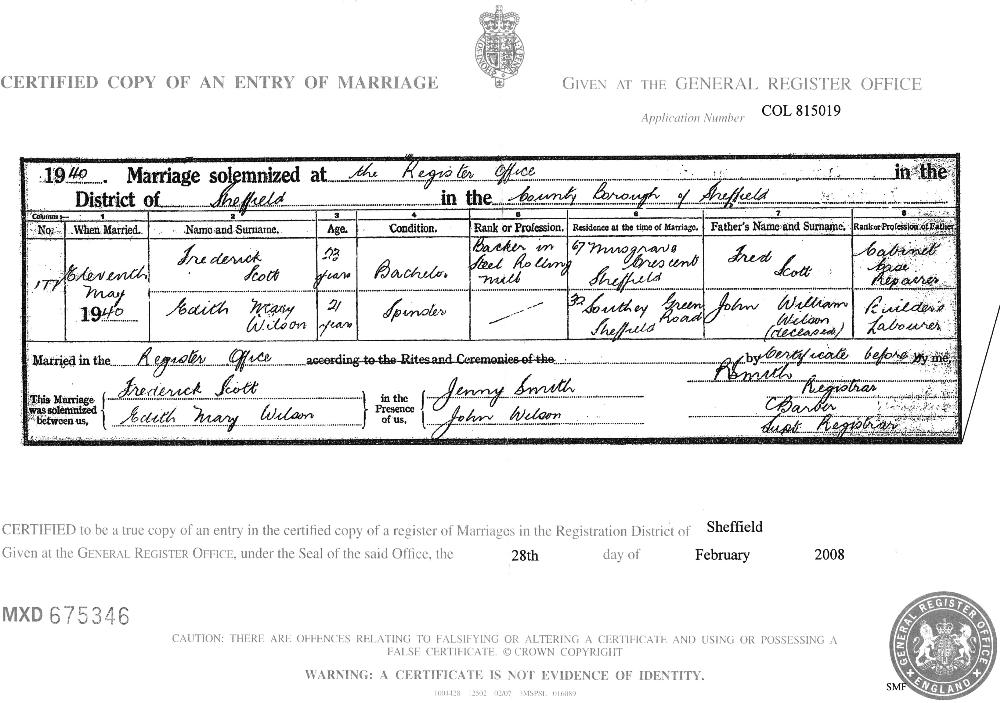 CERTIFIED COPY OF AN ENTRY OF MARRIAGE
GIVEN AT THE GENERAL REGISTER OFFICE
Application Number COL 815019
1940. Marriage solemnized at the Register Office in the
District of Sheffield in the County Borough of Sheffield
Columns:— 1 2 3 4 5 6 7 8
No. When Married. Name and Surname. Age. Condition. Rank or Profession. Residence at the time of Marriage. Father's Name and Surname. Rank or Profession of Father
177 Eleventh May 1940
Frederick Scott years Bachelor in Steel Rolling mill 67 Musgrave Crescent Sheffield Fred Scott Cabinet Case Repairer
Edith Mary Wilson 21 years Spinster — 32 Southey Green Road Sheffield John William Wilson (deceased) Builder's Labourer
Married in the Register Office according to the Rites and Ceremonies of the by Certificate before by me,
This Marriage was solemnized between us,
Frederick Scott
Edith Mary Wilson
in the Presence of us,
Jenny Smith
John Wilson
R Smith
Registrar
C Barber
Supt Registrar
CERTIFIED to be a true copy of an entry in the certified copy of a register of Marriages in the Registration District of Sheffield
Given at the GENERAL REGISTER OFFICE, under the Seal of the said Office, the 28th day of February 2008
MXD 675346
CAUTION: THERE ARE OFFENCES RELATING TO FALSIFYING OR ALTERING A CERTIFICATE AND USING OR POSSESSING A
FALSE CERTIFICATE. © CROWN COPYRIGHT
WARNING: A CERTIFICATE IS NOT EVIDENCE OF IDENTITY.
1004428 12502 02/07 3MSPSL 016089
GENERAL REGISTER OFFICE
ENGLAND
SMF